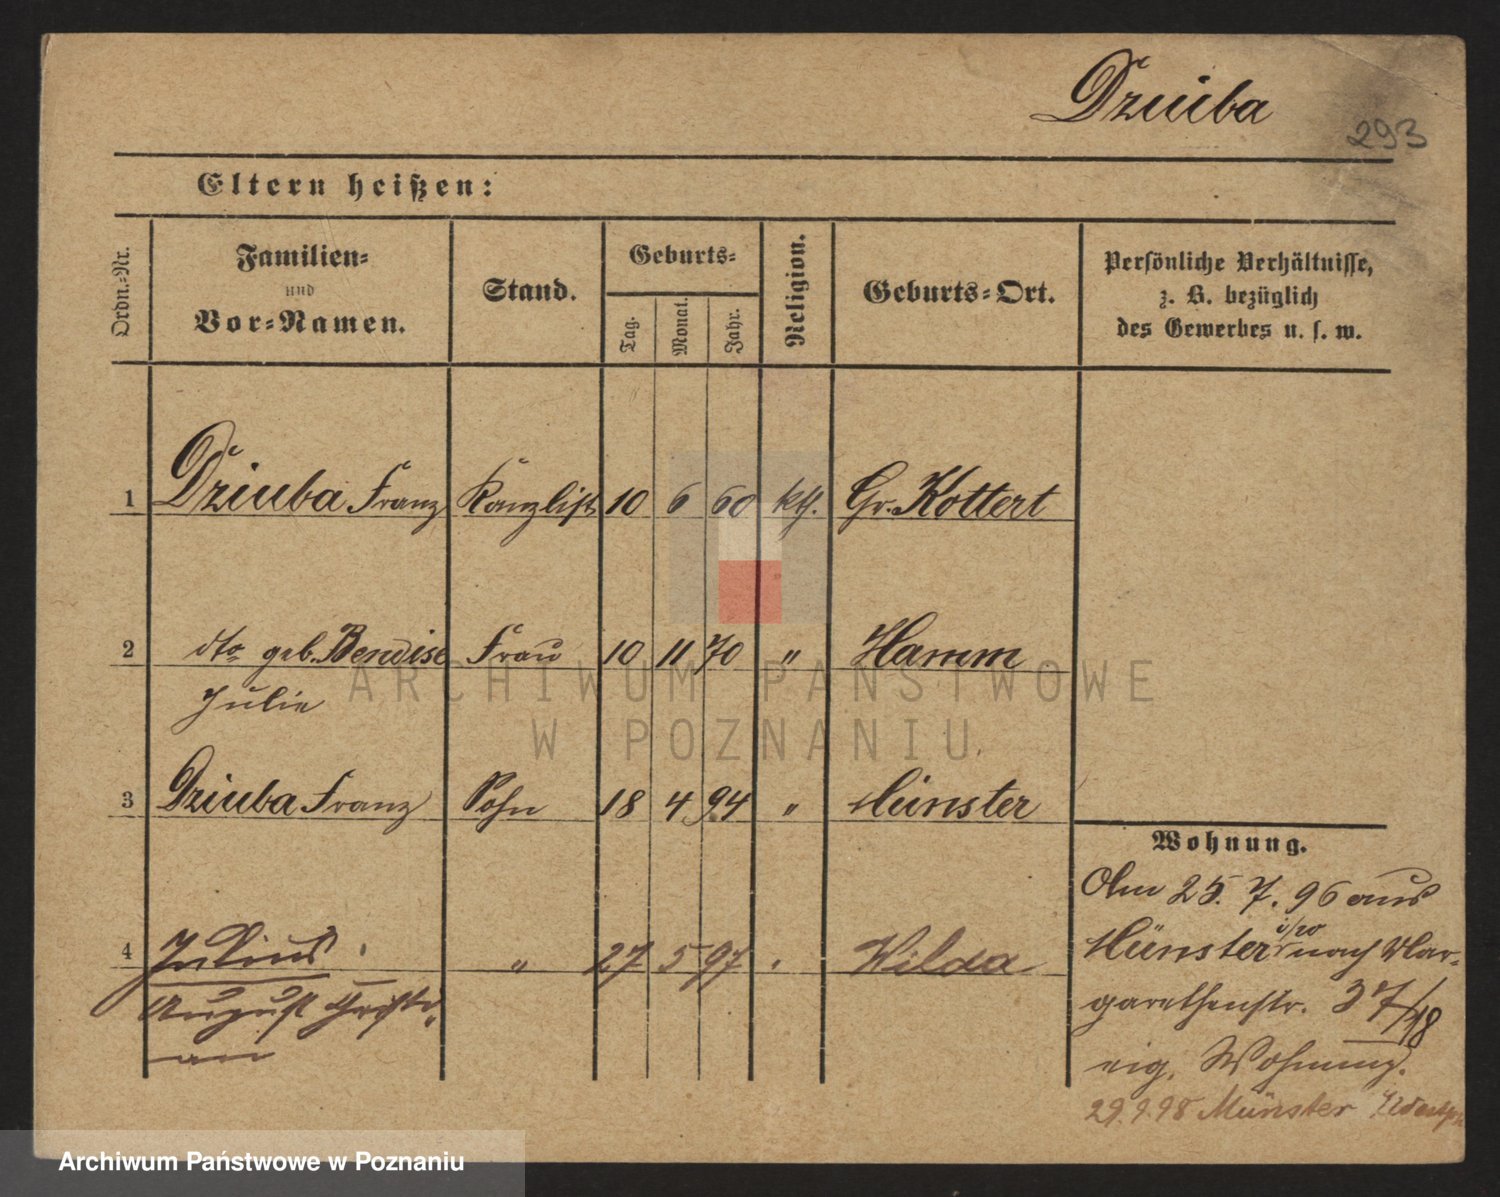 Dziuba
293
Eltern heißen:
Ordn.-Nr.
Familien-
und
Vor-Namen.
Stand.
Geburts-
Tag.
Monat.
Jahr.
Religion.
Geburts-Ort.
Persönliche Verhältnisse,
z. B. bezüglich
des Gewerbes u. s. w.
1 Dziuba Franz Kanzlist 10 6 60 kth. Gr. Kottert
2 dto geb. Bendise Frau 10 11 70 " Hamm
Julie
3 Dziuba Franz Sohn 18 4 94 " Münster
4 Julius " 27 5 97 Wilda
August
Wohnung.
25. 7. 96 aus
Münster nach Mar-
garethenstr. 37/18
eig. Wohnung.
29. 9. 98 Münster
ARCHIWUM PAŃSTWOWE
W POZNANIU
Archiwum Państwowe w Poznaniu